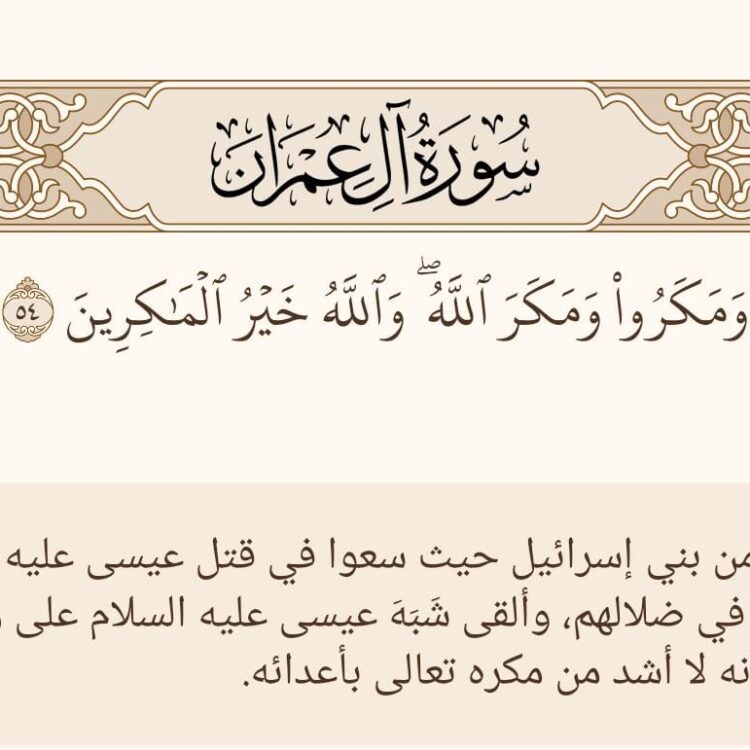 سُورَةُ آلِ عِمۡرَانَ
وَمَكَرُواْ وَمَكَرَ ٱللَّهُۖ وَٱللَّهُ خَيۡرُ ٱلۡمَٰكِرِينَ ٥٤
من بني إسرائيل حيث سعوا في قتل عيسى عليه
في ضلالهم، وألقى شَبَهَ عيسى عليه السلام على
نه لا أشد من مكره تعالى بأعدائه.